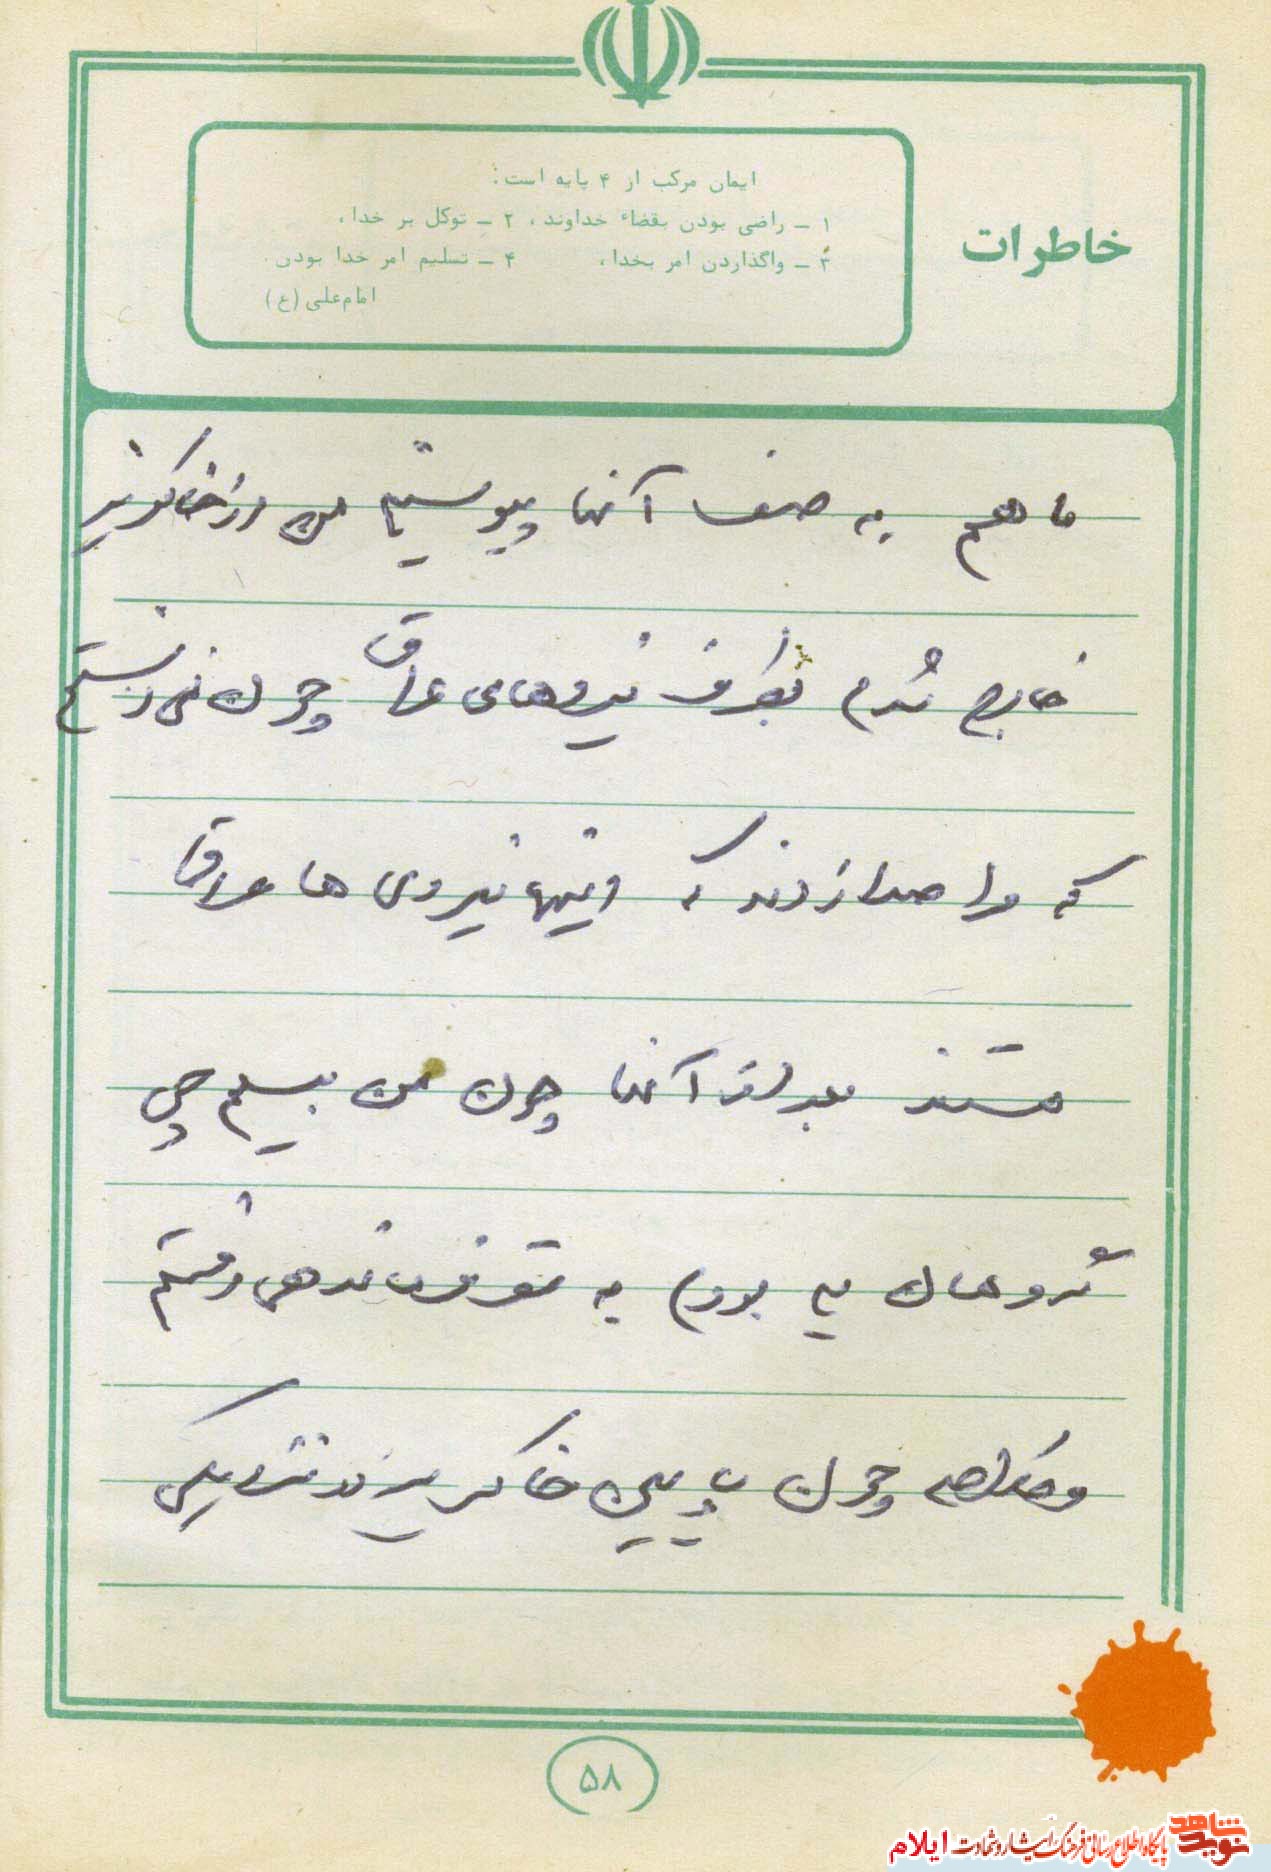 ایمان مرکب از ۴ پایه است:
۱ ــ راضی بودن بقضاء خداوند، ۲ ــ توکل بر خدا،
۳ ــ واگذاردن امر بخدا، ۴ ــ تسلیم امر خدا بودن.
امام‌علی (ع)
خاطرات
ما هم به صف آنها پیوستیم من از خاکریز
خارج شدم بطرف نیروهای عراق چون نمی‌دانستم
که مرا صدا زدند که اینها نیروی ها عراق
هستند بعد از آنها چون من بیسم چی
گروهان یم بودم به فرماندهی رفتم
وخلاصه چون پایین خاکریز نزدیکی
۵۸
نوید شاهد
پایگاه اطلاع رسانی فرهنگ ایثار و شهادت ایلام